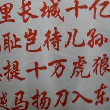 里长城十亿
耻岂待儿孙
提十万虎狼
马扬刀入